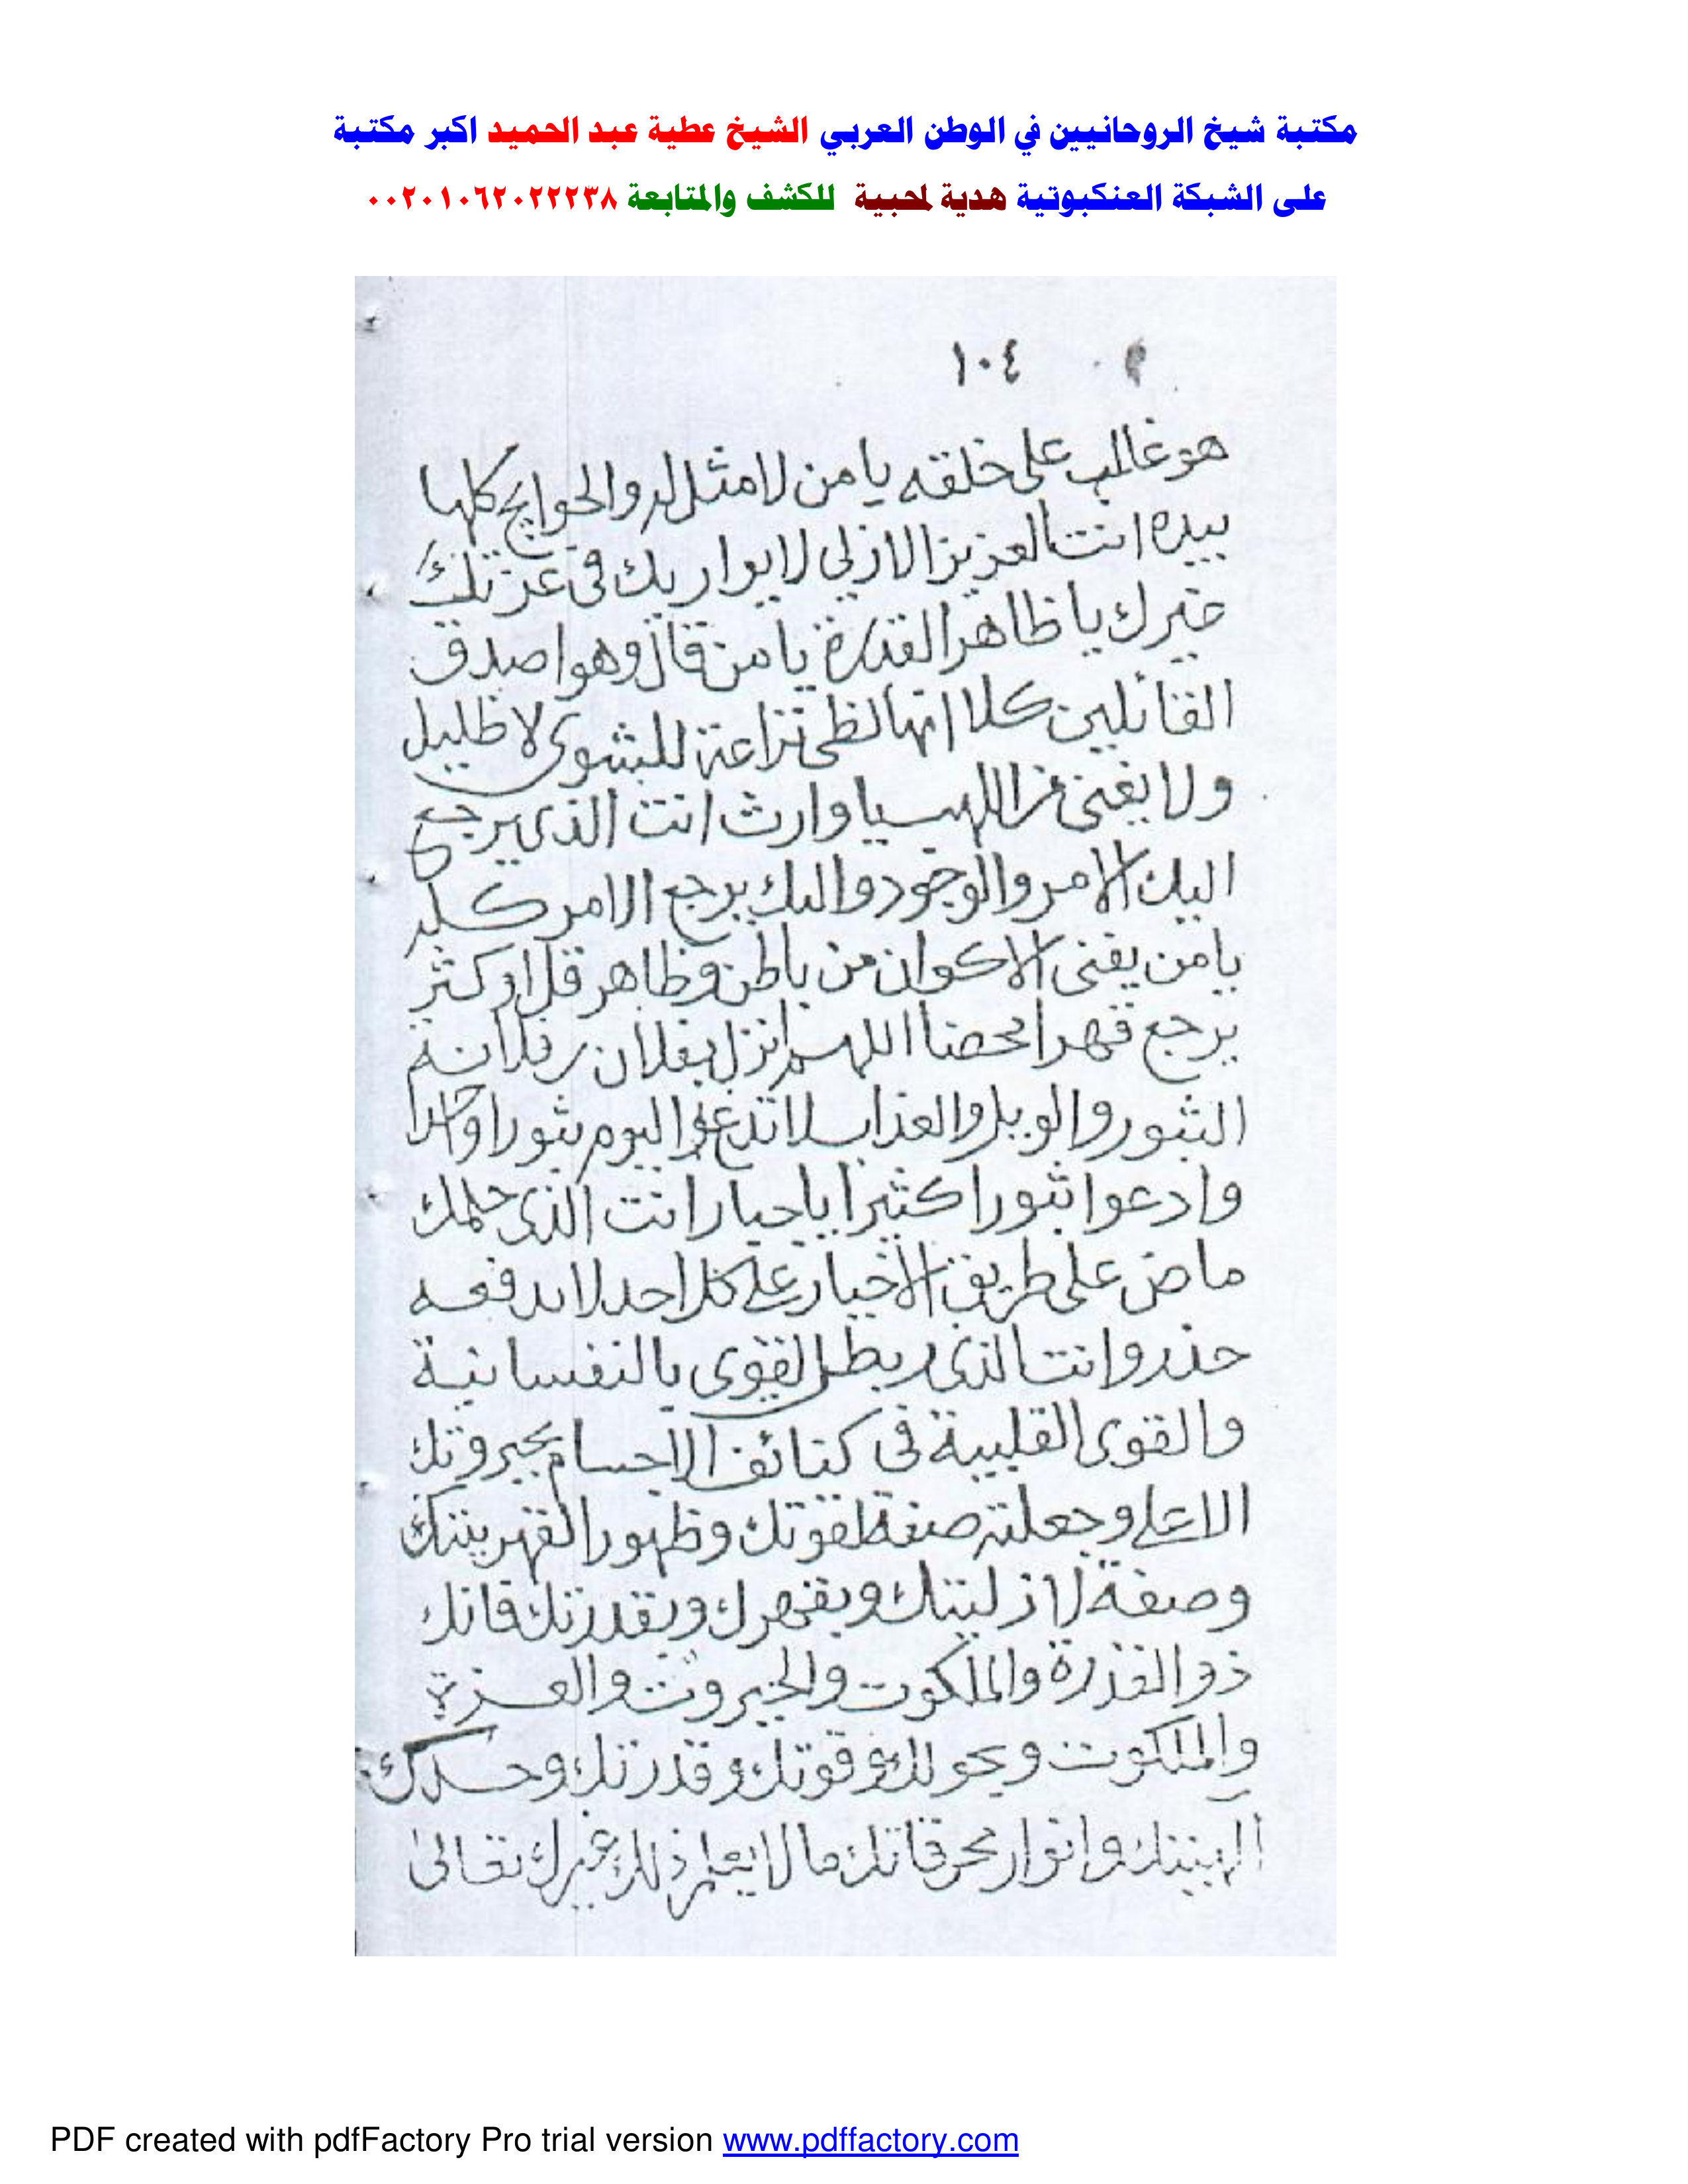 مكتبة شيخ الروحانيين في الوطن العربي الشيخ عطية عبد الحميد اكبر مكتبة
على الشبكة العنكبوتية هدية لمحبية للكشف والمتابعة ٠٠٢٠١٠٦٢٠٢٢٢٣٨
١٠٤
هو غالب على خلقه يا من لا مثل له والحوايج كلها
بيده انت العزيز الازلي لا يواريك في عزتك
غيرك يا ظاهر القدرة يا من قال وهو اصدق
القائلين كلا انها لظى نزاعة للشوى لا ظليل
ولا يغنى من اللهب يا وارث انت الذى يرجع
اليك الامر والوجود واليك يرجع الامر كله
يا من يفنى الاكوان من باطن وظاهر قل او كثر
يرجع قهرا محضا اللهم انزل بفلان بن فلانة
الثبور والويل والعذاب لا تدعوا اليوم ثبورا واحدا
وادعوا ثبورا كثيرا يا جبار انت الذى حكمك
ماض على طريق الاجبار على كل احد لا يدفعه
حذر وانت الذى ربط القوى بالنفسانية
والقوى القلبية في كثائف الاجسام بجبروتك
الاعلى وجعلته صفة لقوتك وظهور القهريتك
وصفة لازليتك وبقهرك وبقدرتك فانك
ذو القدرة والملكوت والجبروت والعزة
والملكوت وبحولك وقوتك وقدرتك وحدك
الهيتك وانوار محرقاتك ما لا يعلم ذلك غيرك تعالى
PDF created with pdfFactory Pro trial version www.pdffactory.com